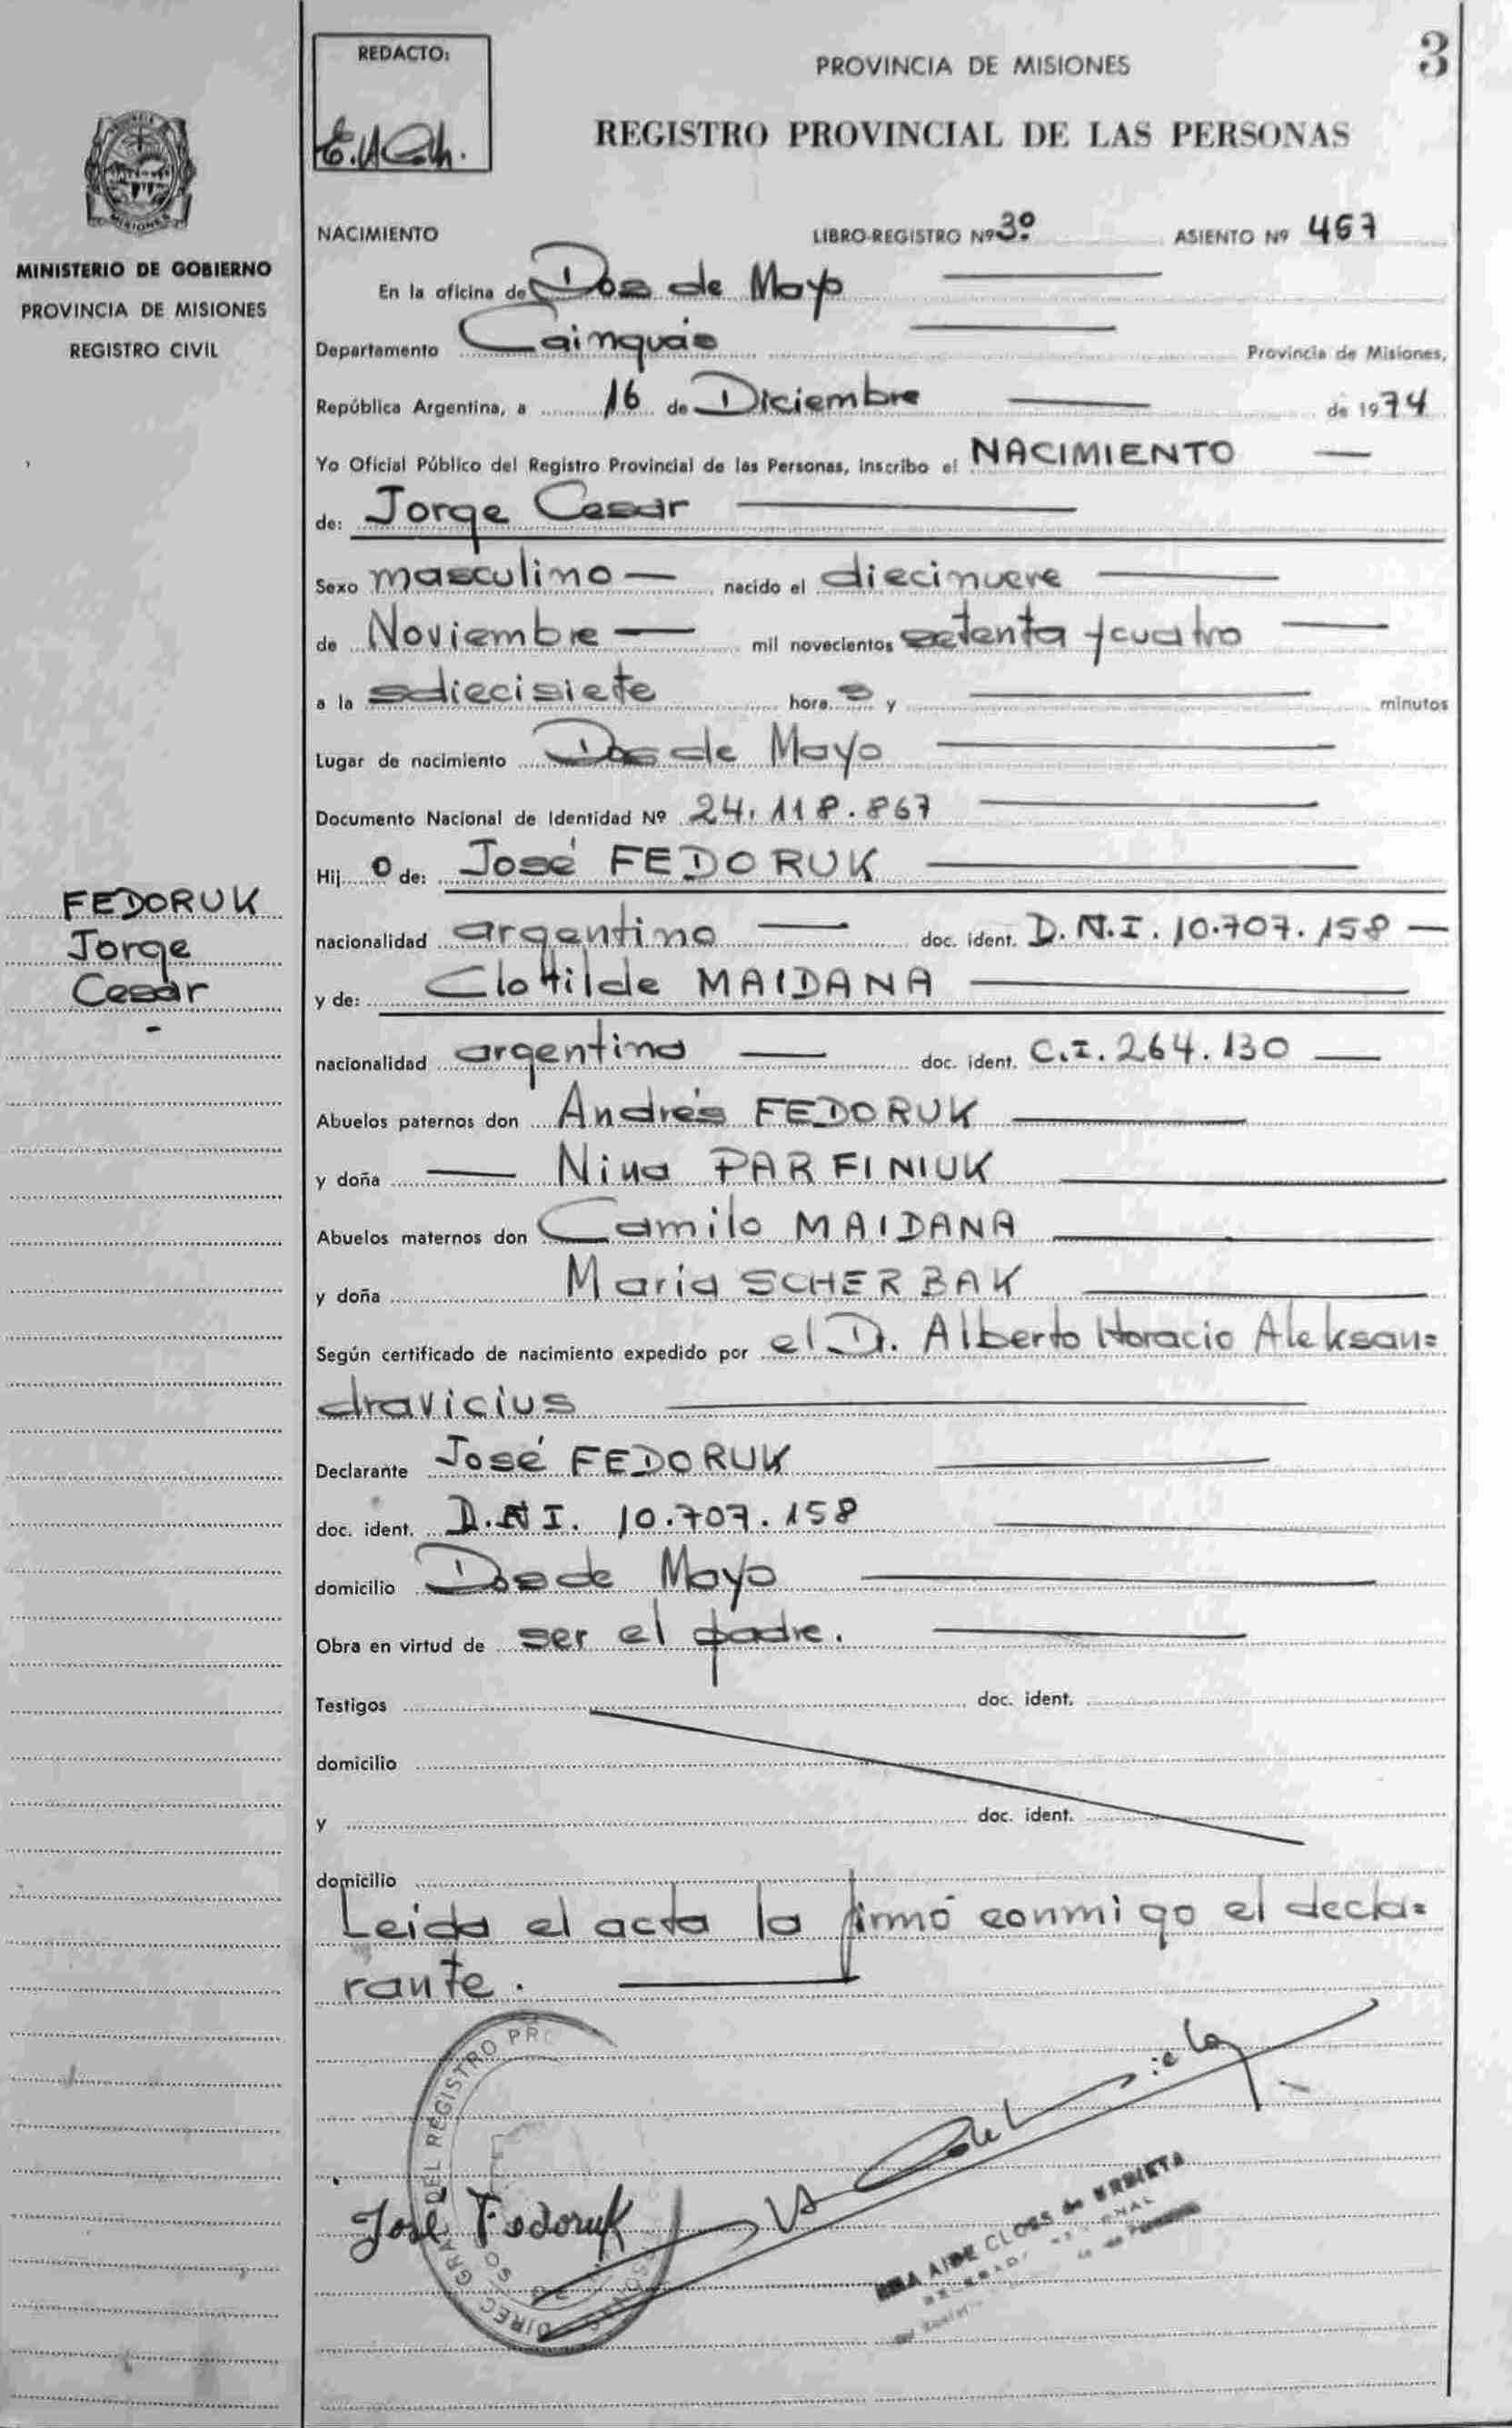 3
REDACTO:
PROVINCIA DE MISIONES
REGISTRO PROVINCIAL DE LAS PERSONAS
MISIONES
MINISTERIO DE GOBIERNO
PROVINCIA DE MISIONES
REGISTRO CIVIL
NACIMIENTO LIBRO-REGISTRO Nº 3º ASIENTO Nº 467
En la oficina de Dos de Mayo
Departamento Cainguás Provincia de Misiones,
República Argentina, a 16 de Diciembre de 1974
Yo Oficial Público del Registro Provincial de las Personas, inscribo el NACIMIENTO
de: Jorge Cesar
Sexo masculino nacido el diecinueve
de Noviembre mil novecientos setenta y cuatro
a la s diecisiete hora s y minutos
Lugar de nacimiento Dos de Mayo
Documento Nacional de Identidad Nº 24.118.867
Hij o de: José FEDORUK
FEDORUK
Jorge
Cesar
nacionalidad argentino doc. ident. D.N.I. 10.707.158
y de: Clotilde MAIDANA
nacionalidad argentina doc. ident. C.I. 264.130
Abuelos paternos don Andrés FEDORUK
y doña Nina PARFINIUK
Abuelos maternos don Camilo MAIDANA
y doña Maria SCHERBAK
Según certificado de nacimiento expedido por el Dr. Alberto Horacio Aleksan=
dravicius
Declarante José FEDORUK
doc. ident. D.N.I. 10.707.158
domicilio Dos de Mayo
Obra en virtud de ser el padre.
Testigos doc. ident.
domicilio
y doc. ident.
domicilio
Leida el acta la firmó conmigo el decla=
rante.
DEL REGISTRO PR
José Fedoruk
AIDE CLOSS de URRIETA